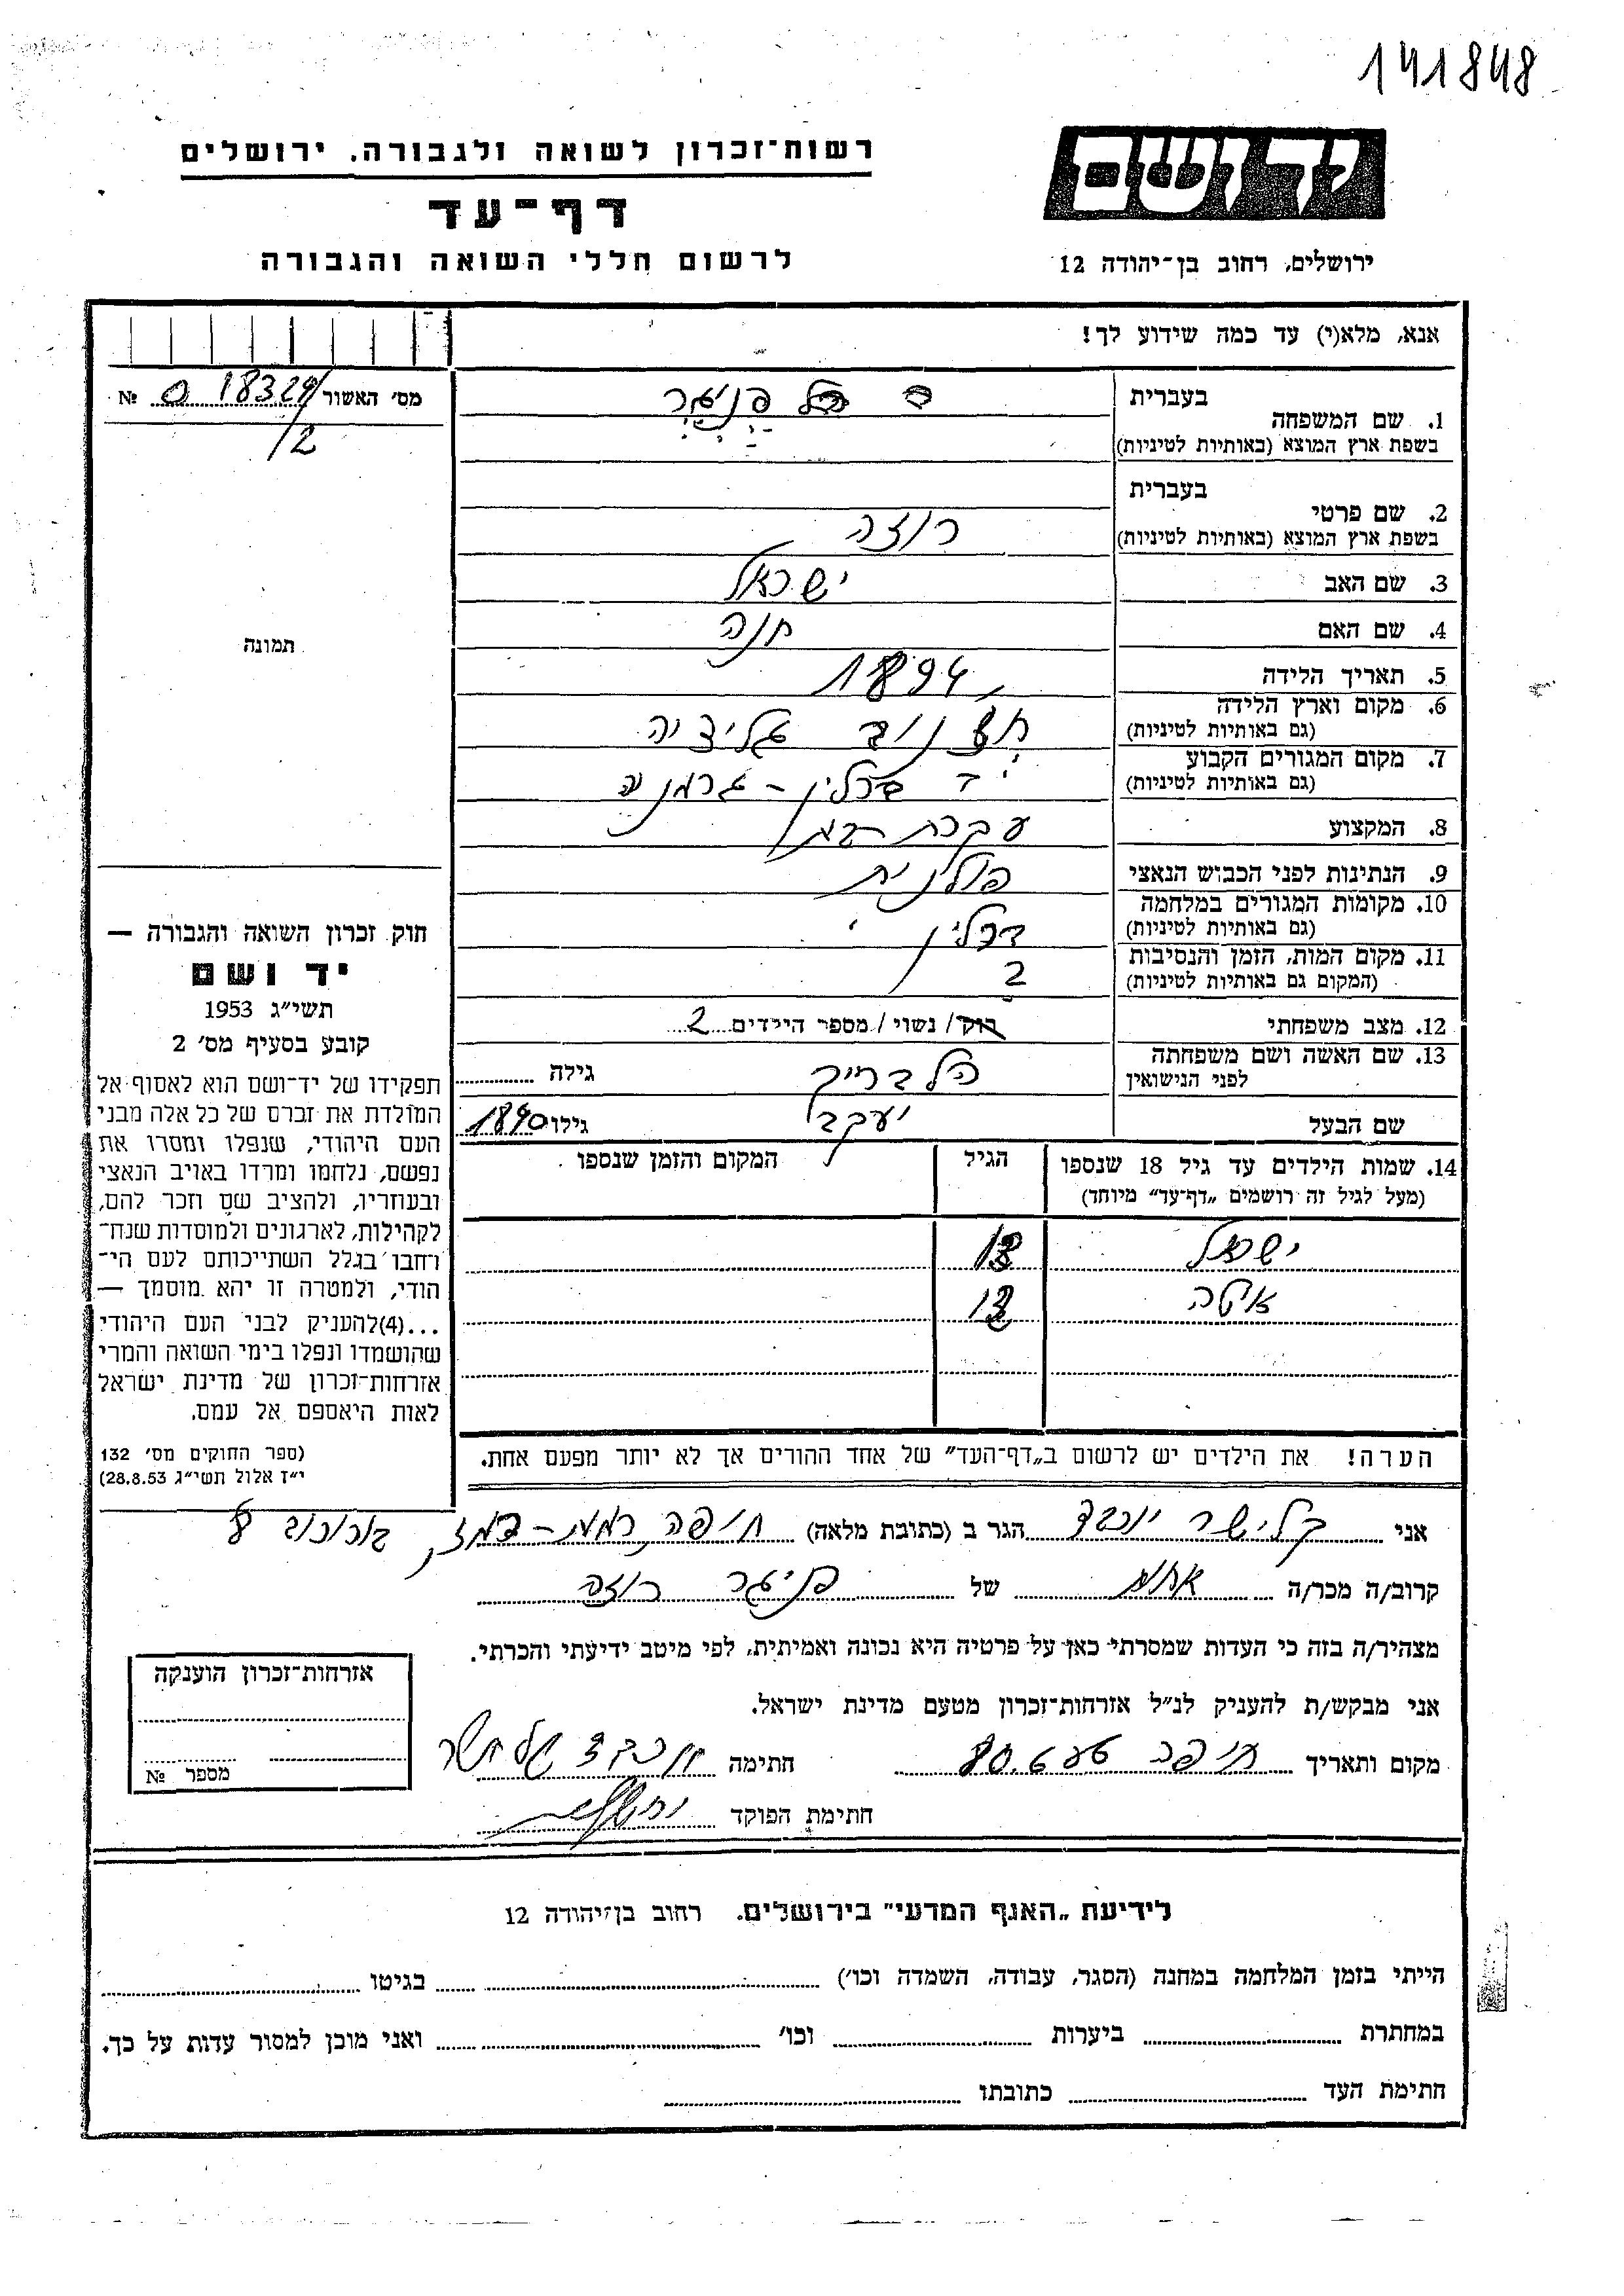 141848
ידושם
רשות־זכרון לשואה ולגבורה. ירושלים
דף־עד
לרשום חללי השואה והגבורה
ירושלים, רחוב בן־יהודה 12
אנא, מלא(י) עד כמה שידוע לך!
מס׳ האשור 18329 / 2 0 №
1. שם המשפחה
בעברית פניגר
בשפת ארץ המוצא (באותיות לטיניות)
2. שם פרטי
בעברית
בשפת ארץ המוצא (באותיות לטיניות) רוזה
3. שם האב ישראל
4. שם האם חנה
5. תאריך הלידה 1894
6. מקום וארץ הלידה
(גם באותיות לטיניות) גליציה
7. מקום המגורים הקבוע
(גם באותיות לטיניות) ברלין - גרמניה
8. המקצוע עקרת בית
9. הנתינות לפני הכבוש הנאצי פולנית
10. מקומות המגורים במלחמה
(גם באותיות לטיניות) ברלין
11. מקום המות, הזמן והנסיבות
(המקום גם באותיות לטיניות) ?
12. מצב משפחתי רוק/ נשוי/ מספר הילדים 2
13. שם האשה ושם משפחתה
לפני הנישואין הלברייך גילה
שם הבעל יעקב גילו 1890
14. שמות הילדים עד גיל 18 שנספו
(מעל לגיל זה רושמים „דף־עד״ מיוחד)
הגיל
המקום והזמן שנספו
ישראל
איטה
הערה! את הילדים יש לרשום ב„דף־העד״ של אחד ההורים אך לא יותר מפעם אחת.
תמונה
חוק זכרון השואה והגבורה —
יד ושם
תשי״ג 1953
קובע בסעיף מס׳ 2
תפקידו של יד־ושם הוא לאסוף אל
המולדת את זכרם של כל אלה מבני
העם היהודי, שנפלו ומסרו את
נפשם, נלחמו ומרדו באויב הנאצי
ובעוזריו, ולהציב שם וזכר להם,
לקהילות, לארגונים ולמוסדות שנח־
רחבו בגלל השתייכותם לעם הי־
הודי, ולמטרה זו יהא מוסמך —
...(4)להעניק לבני העם היהודי
שהושמדו ונפלו בימי השואה והמרי
אזרחות־זכרון של מדינת ישראל
לאות היאספם אל עמם.
(ספר החוקים מס׳ 132
י״ז אלול תשי״ג 28.8.53)
אני קלישר יוכבד הגר ב (כתובת מלאה) חיפה רמת-רמז, בורוכוב
קרוב/ה מכר/ה אחות של פניגר רוזה
מצהיר/ה בזה כי העדות שמסרתי כאן על פרטיה היא נכונה ואמיתית, לפי מיטב ידיעתי והכרתי.
אני מבקש/ת להעניק לנ״ל אזרחות־זכרון מטעם מדינת ישראל.
מקום ותאריך חיפה חתימה יוכבד קלישר
חתימת הפוקד
אזרחות־זכרון הוענקה
מספר №
לידיעת „האגף המדעי״ בירושלים. רחוב בן־יהודה 12
הייתי בזמן המלחמה במחנה (הסגר, עבודה, השמדה וכו׳) בגיטו
במחתרת ביערות וכו׳ ואני מוכן למסור עדות על כך.
חתימת העד כתובתו